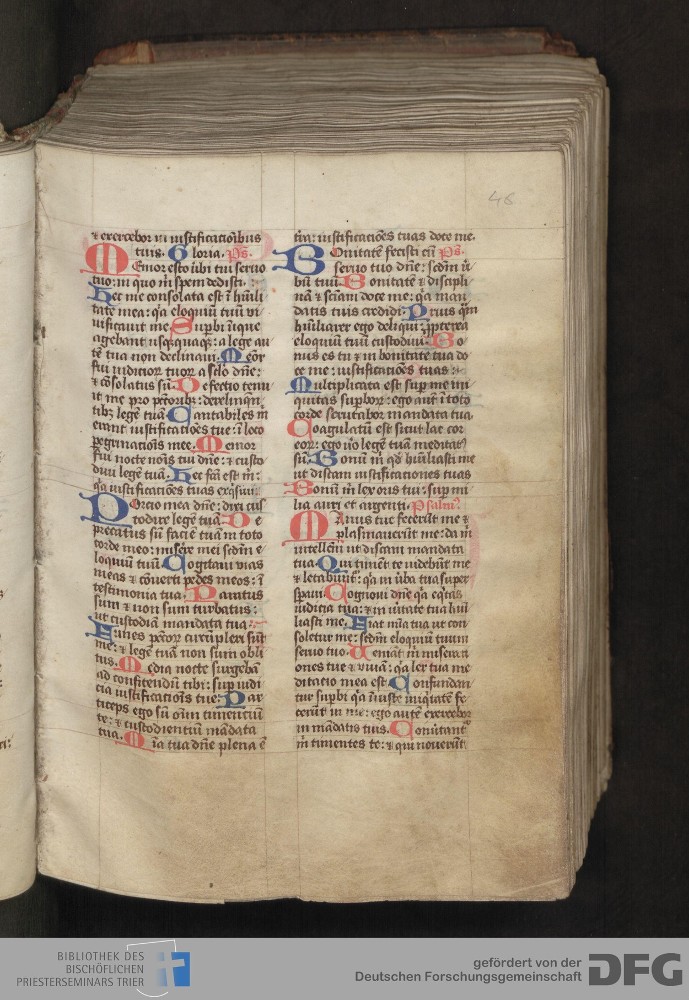 46
⁊ exercebor in iustificatiōibus
tuis. Gloria. Ps.
Memor esto ūbi tui seruo
tuo: in quo m̄ spem dedisti.
Hec me consolata est ī hūili
tate mea: qa eloquiū tuū vi
uificauit me. Supbi īique
agebant usqquaq: a lege au
tē tua non declinaui. Meōr
fui iudicior tuor a sclo dn̄e:
⁊ cōsolatus sū. Defectio tenu
it me pro pctoribz: derelinqn
tibz legē tuā. Cantabiles m̄
erant iustificatiōes tue: ī loco
pegrinatiōis mee. Memor
fui nocte noīs tui dn̄e: ⁊ custo
diui legē tuā. Hec fcā est m̄:
qa iustificatiōes tuas exqsiui.
Portio mea dn̄e: dixi cus
todire legē tuā. De
precatus sū faciē tuā in toto
corde meo: misēre mei scdm̄ e
loquiū tuū. Cogitaui vias
meas ⁊ cōuerti pedes meos: ī
testimonia tua. Paratus
sum ⁊ non sum turbatus:
ut custodiā mandata tua.
Funes pctor circūplexi sūt
me: ⁊ legē tuā non sum obli
tus. Media nocte surgebā
ad confitendū tibi: sup iudi
cia iustificatiōis tue. Par
ticeps ego sū oīm timentiū
te: ⁊ custodientiū mādata
tua. Mīa tua dn̄e plena ē
tr̄ra: iustificatiōes tuas doce me.
Bonitatē fecisti cū Ps.
seruo tuo dn̄e: scdm̄ ū
bū tuū. Bonitatē ⁊ discipli
nā ⁊ sciam doce me: qa man
datis tuis credidi. Prius qm̄
hūiliarer ego deliqui: ppterea
eloquiū tuū custodiui. Bo
nus es tu ⁊ in bonitate tua do
ce me: iustificatiōes tuas.
Multiplicata est sup me ini
quitas supbor: ego aut ī toto
corde scrutabor mandata tua.
Coagulatū est sicut lac cor
eor: ego ūo legē tuā meditat
sū. Bonū m̄ qd hūiliasti me
ut discam iustificationes tuas
Bonū m̄ lex oris tui: sup mi
lia auri et argenti. Psalm
Manus tue fecerūt me ⁊
plasmauerūt me: da m̄
intellcm̄ ut discam mandata
tua. Qui timēt te uidebūt me
⁊ letabunt: qa in ūba tua super
spaui. Cognoui dn̄e qa eqtas
iudicia tua: ⁊ in ūitate tua hūi
liasti me. Fiat mīa tua ut con
soletur me: scdm̄ eloquiū tuum
seruo tuo. Ueniāt m̄ miserati
ones tue ⁊ viuā: qa lex tua me
ditatio mea est. Confundan
tur supbi qa īiuste īniqitatē fe
cerūt in me: ego autē exercebor
in mādatis tuis. Conuertant
m̄ timentes te: ⁊ qui nouerūt
BIBLIOTHEK DES
BISCHÖFLICHEN
PRIESTERSEMINARS TRIER
gefördert von der
Deutschen Forschungsgemeinschaft
DFG